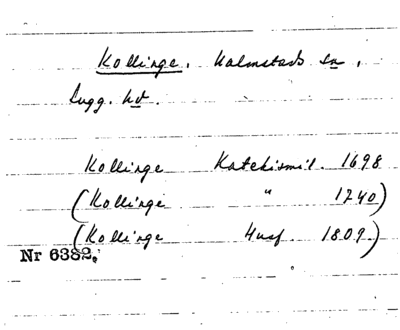 Kollinge. Halmstads sn,
Tugg. hd.
Kollinge Katekismil. 1698
(Kollinge " 1740)
(Kollinge Husf. 1809.)
Nr 6382.